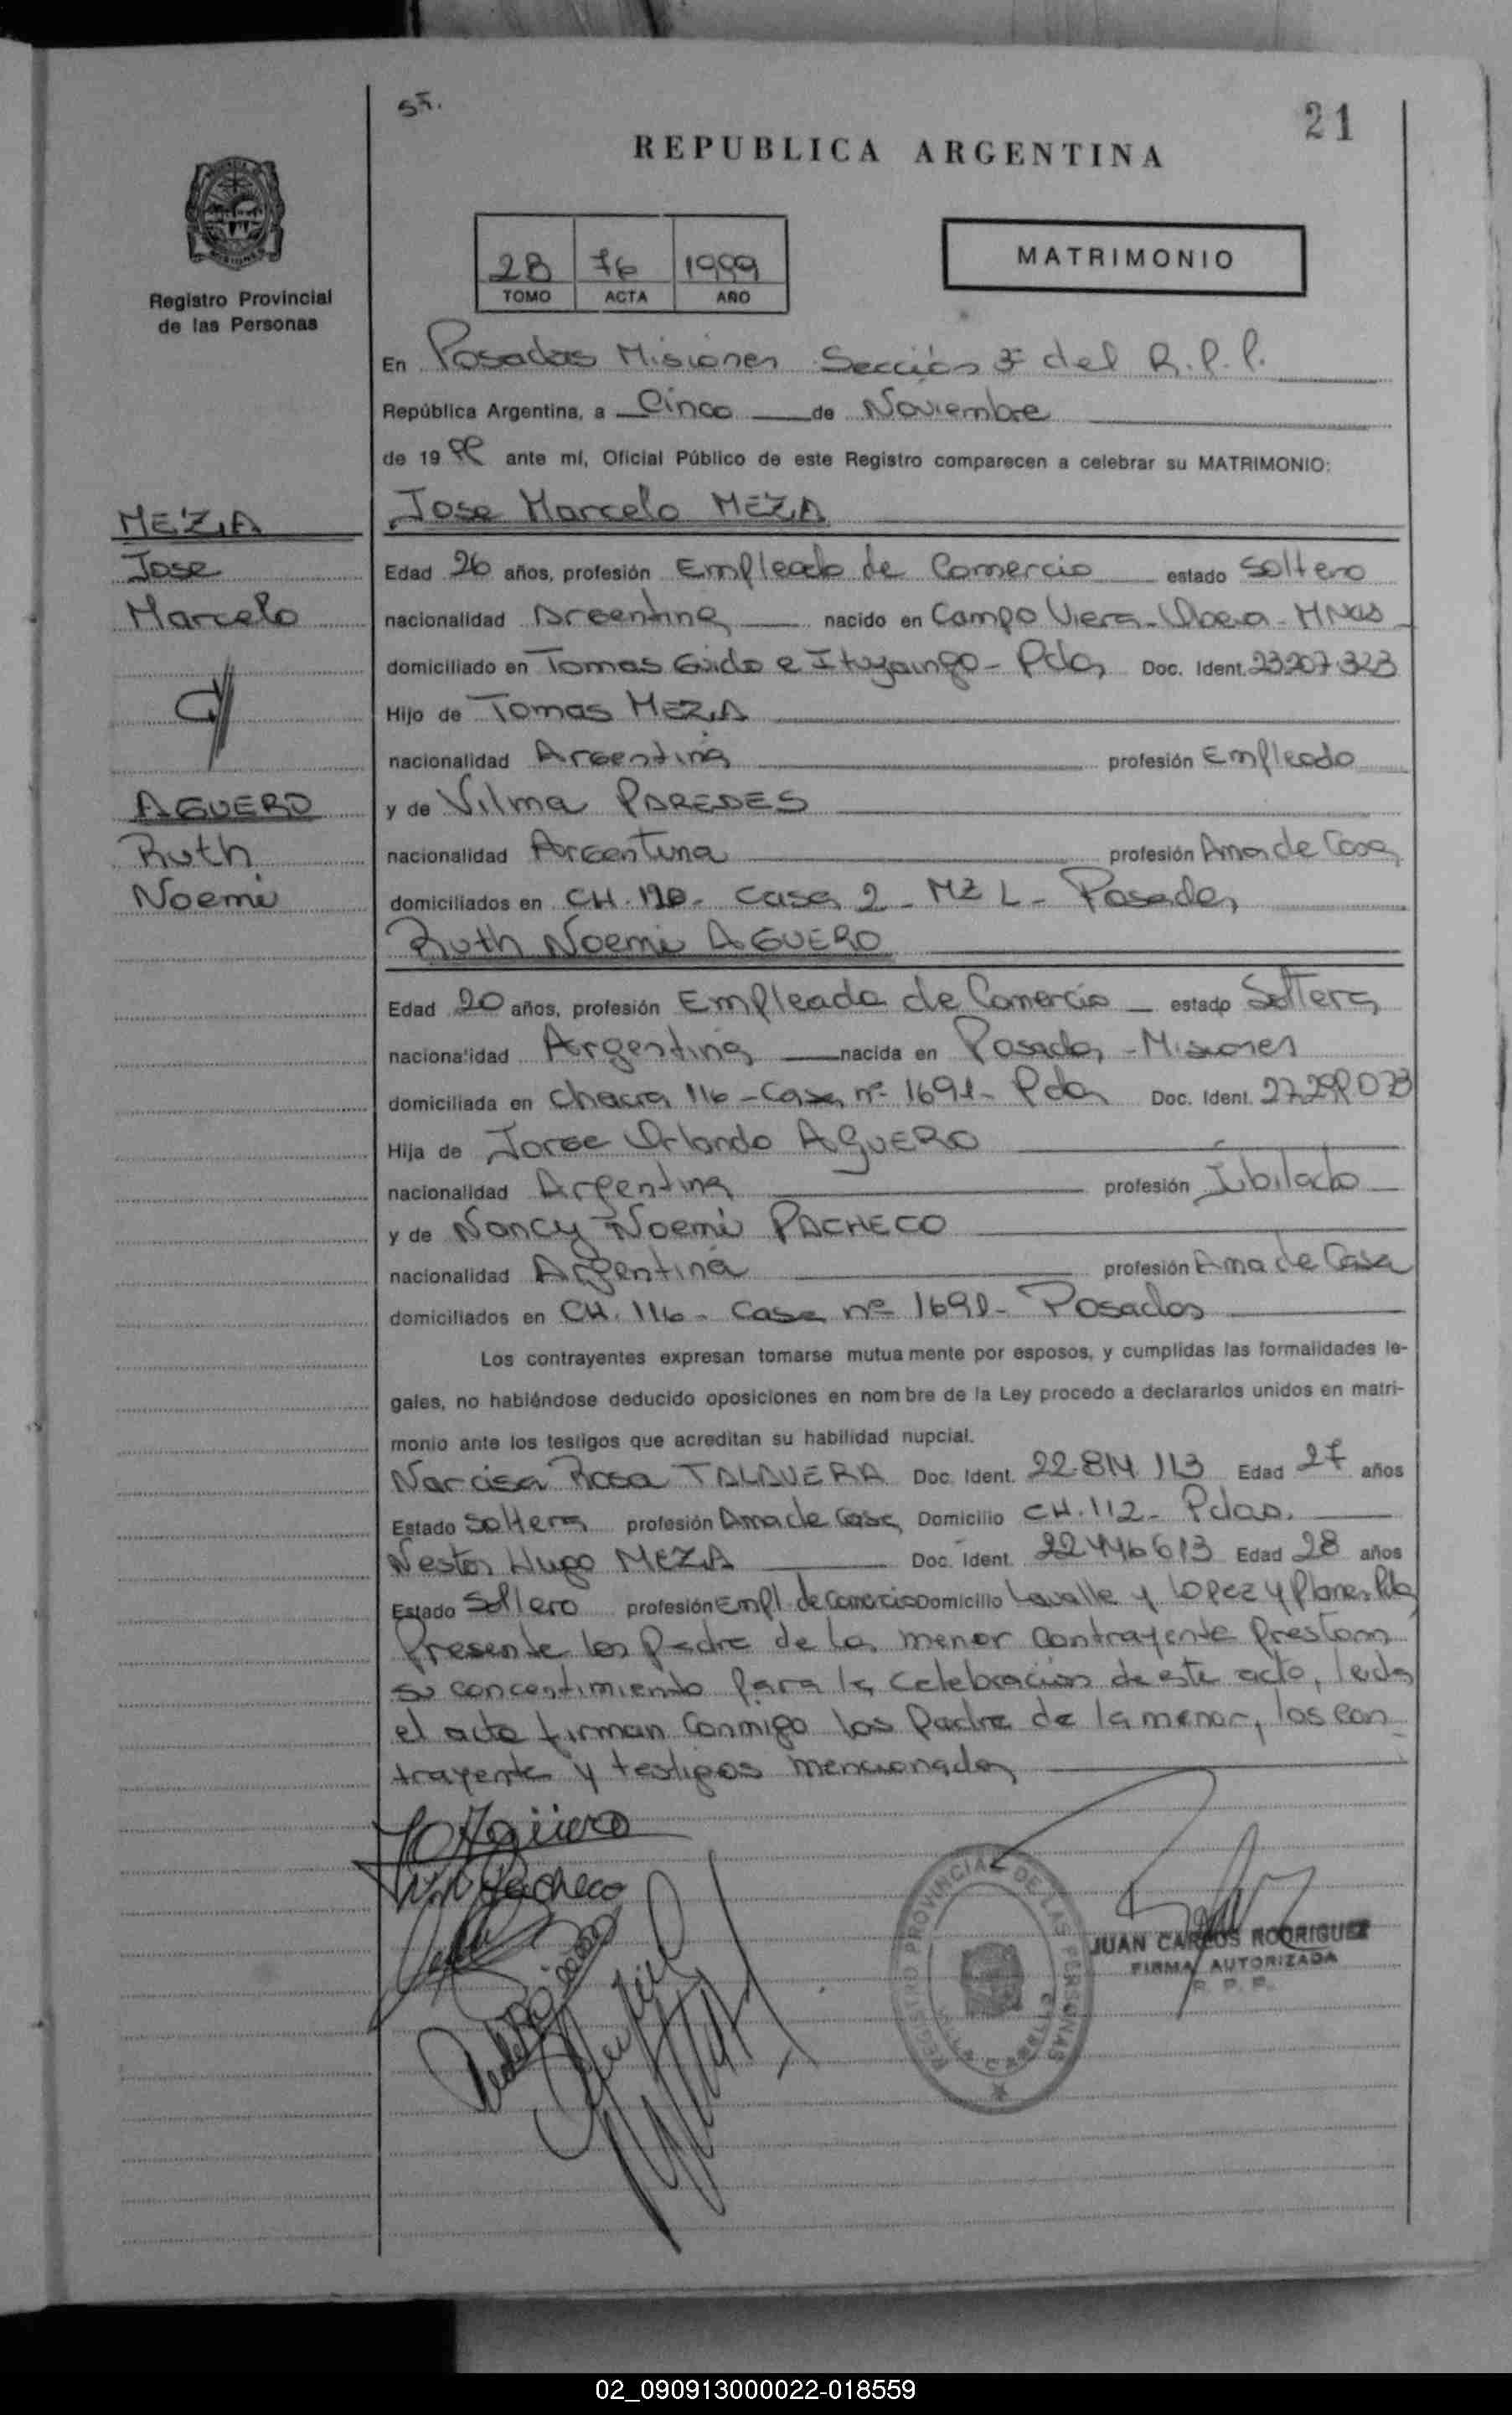 5ª.
21
REPUBLICA ARGENTINA
2B 76 1999
TOMO ACTA AÑO
MATRIMONIO
Registro Provincial
de las Personas
En Posadas Misiones Sección 3ª del R.P.P.
República Argentina, a Cinco de Noviembre
de 19 99 ante mí, Oficial Público de este Registro comparecen a celebrar su MATRIMONIO:
MEZA
Jose
Marcelo
AGUERO
Ruth
Noemi
Jose Marcelo MEZA
Edad 26 años, profesión Empleado de Comercio estado Soltero
nacionalidad Argentina nacido en Campo Viera - Obera - MNES
domiciliado en Tomas Guido e Ituzaingo - Pdas Doc. Ident. 23.207.323
Hijo de Tomas MEZA
nacionalidad Argentina profesión Empleado
y de Vilma PAREDES
nacionalidad Argentina profesión Ama de Casa
domiciliados en CH. 120 - Casa 2 - MZ L - Posadas
Ruth Noemi AGUERO
Edad 20 años, profesión Empleada de Comercio estado Soltera
nacionalidad Argentina nacida en Posadas - Misiones
domiciliada en Chacra 116 - Casa nº 1691 - Pdas Doc. Ident. 27.299.073
Hija de Jorge Orlando AGUERO
nacionalidad Argentina profesión Jubilado
y de Nancy Noemi PACHECO
nacionalidad Argentina profesión Ama de Casa
domiciliados en CH. 116 - Casa nº 1691 - Posadas
Los contrayentes expresan tomarse mutua mente por esposos, y cumplidas las formalidades le-
gales, no habiéndose deducido oposiciones en nom bre de la Ley procedo a declararlos unidos en matri-
monio ante los testigos que acreditan su habilidad nupcial.
Narcisa Rosa TALAVERA Doc. Ident. 22.814.113 Edad 27 años
Estado Soltera profesión Ama de Casa Domicilio CH. 112 - Pdas.
Nestor Hugo MEZA Doc. Ident. 22446613 Edad 28 años
Estado Soltero profesión Empl. de Comercio Domicilio Lavalle y Lopez y Planes Pdas
Presente los padre de la menor contrayente prestam
su concentimiento para la celebración de este acto, leida
el acta firman conmigo los padre de la menor, los con
trayente y testigos mencionados
JO Agüero
NN Pacheco
REGISTRO PROVINCIAL DE LAS PERSONAS
JUAN CARLOS RODRIGUEZ
FIRMA AUTORIZADA
R. P. P.
02_090913000022-018559